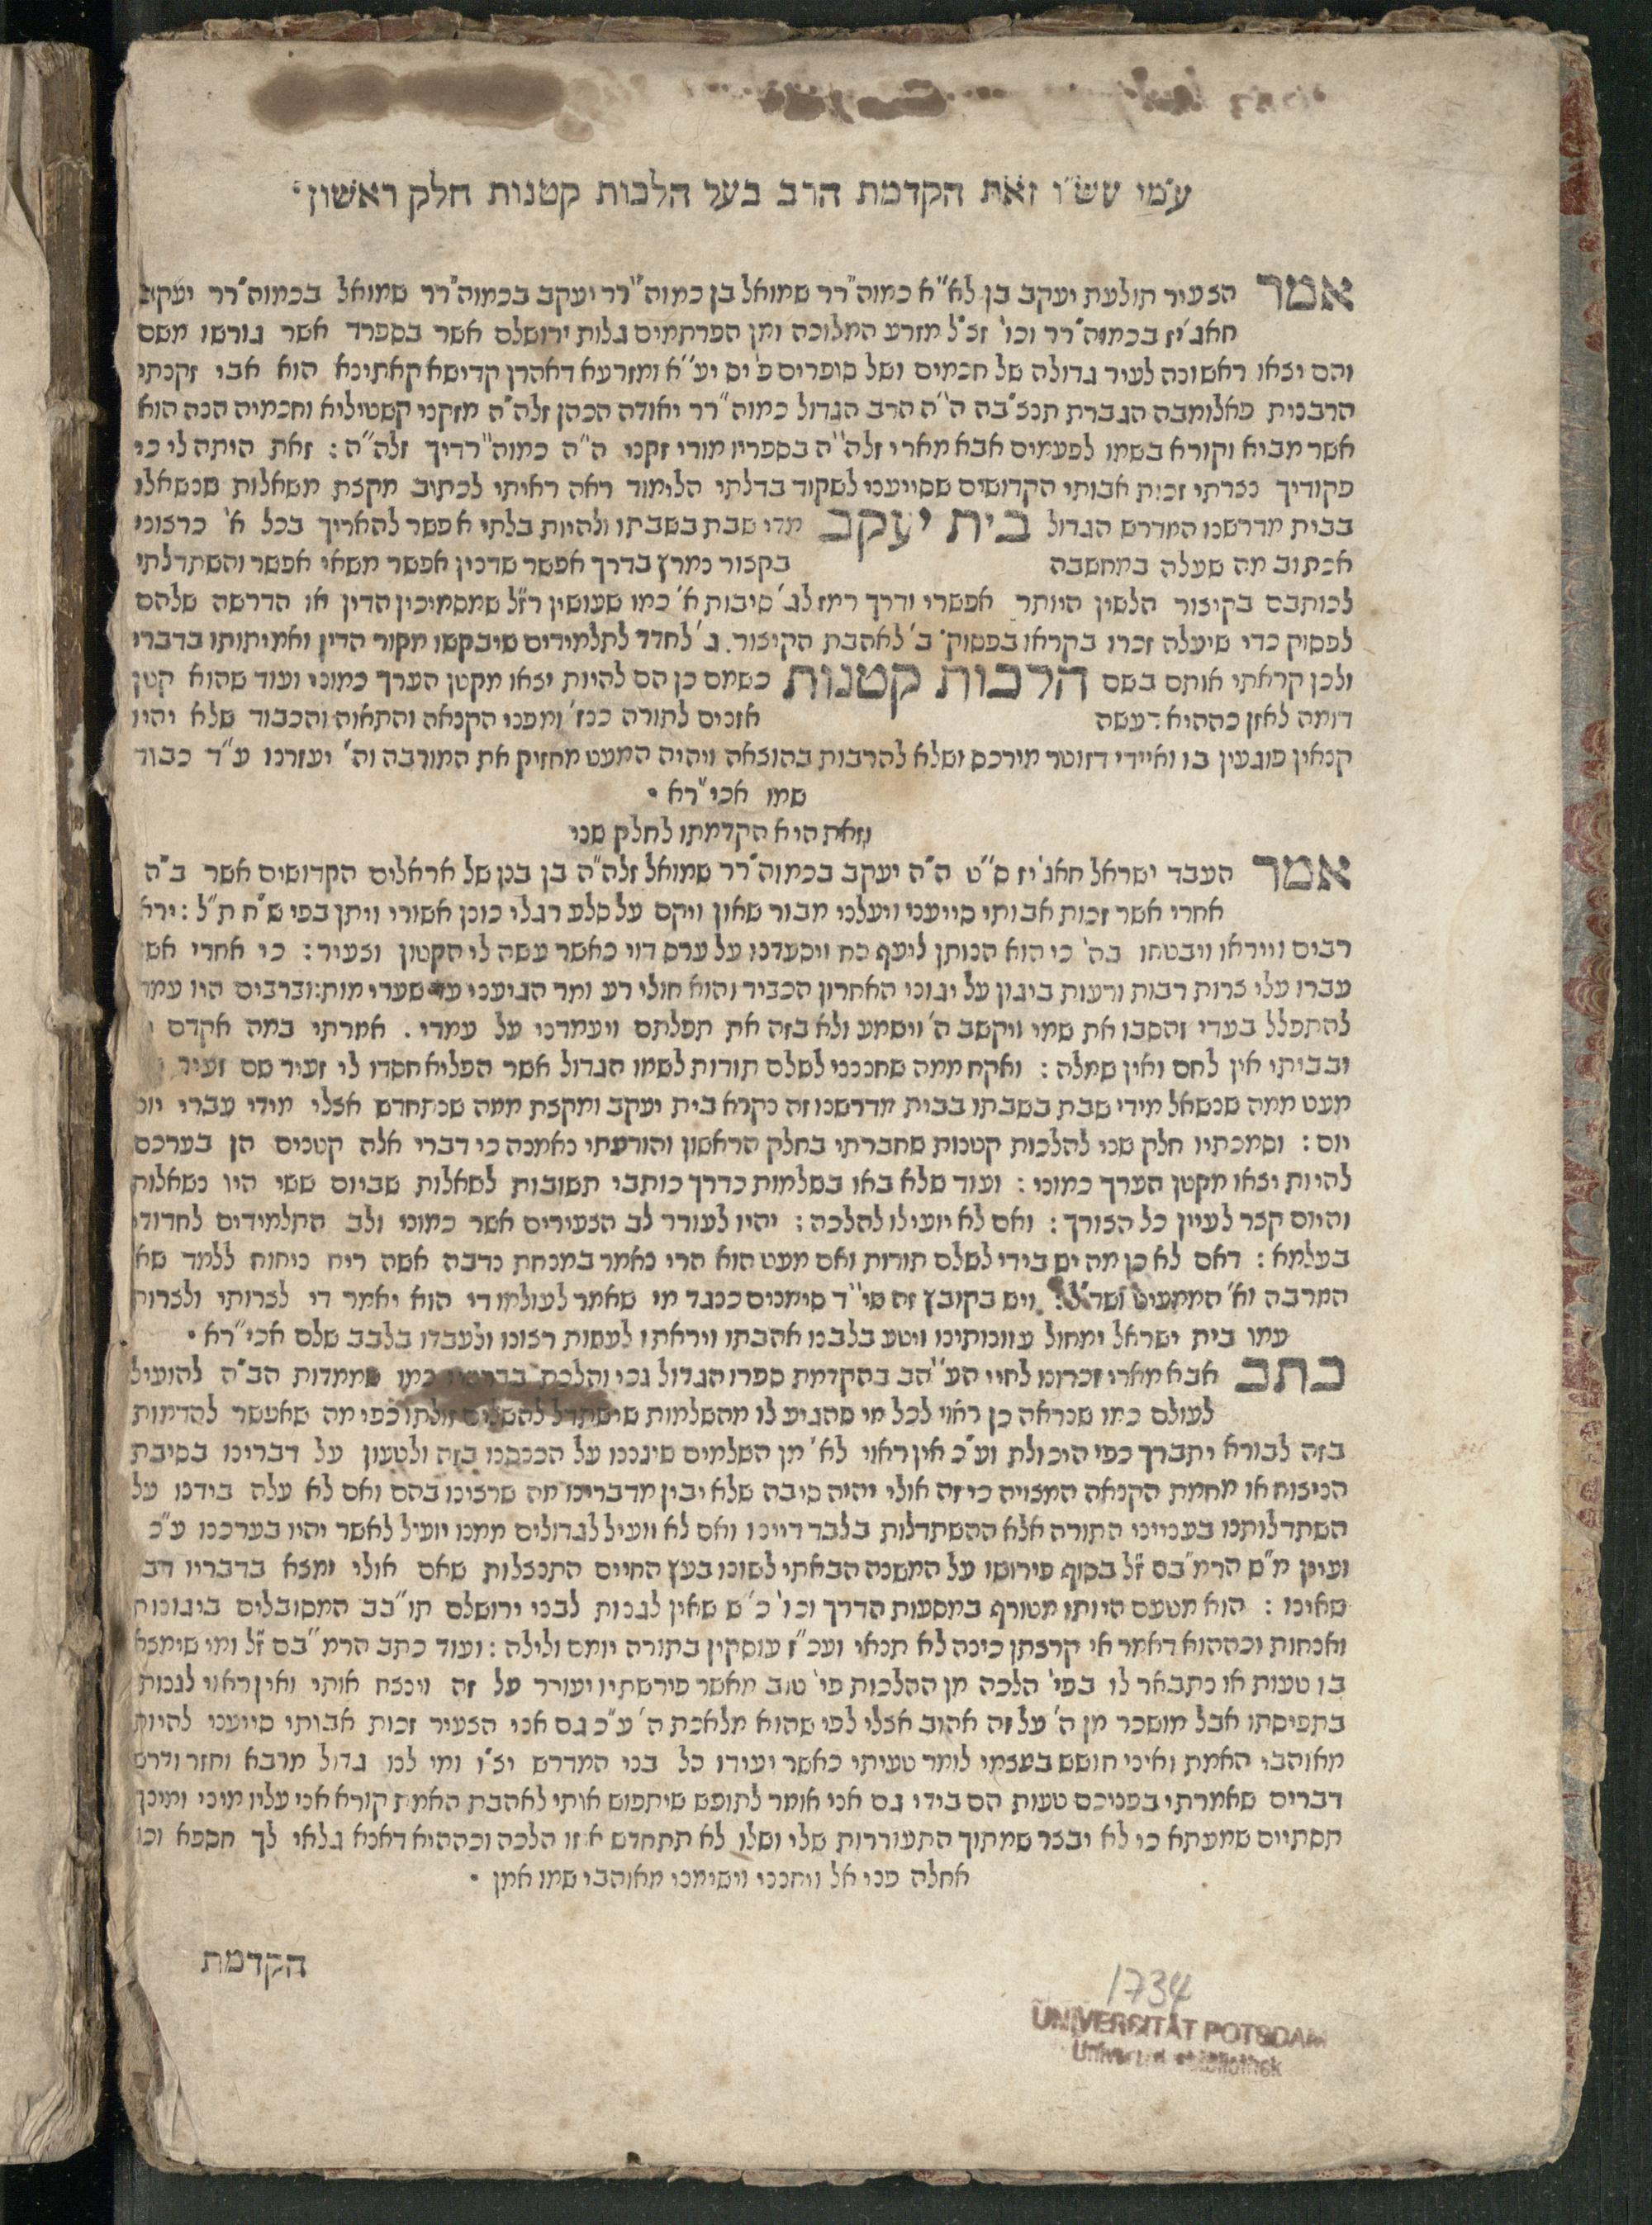 עמי עש"ו זאת הקדמת הרב בעל הלכות קטנות חלק ראשון·
אמר הצעיר תולעת יעקב בן לא"א כמוה"רר שמואל בן כמוה"רר יעקב בכמוה"רר שמואל בכמוה"רר יעקב
חאג'יז בכמוה"רר וכו' זצ"ל מזרע המלוכה ומן הפרתמים גלות ירושלם אשר בספרד אשר גורשו משם
והם יצאו ראשונה לעיר גדולה של חכמים ושל סופרים פ'יס יע"א ומזרעא דאהרן קדישא קאתינא הוא אבי זקנתי
הרבנית פאלומבה הגברת תנצ"בה ה"ה הרב הגדול כמוה"רר יאודה הכהן זלה"ה מזקני קשטיליא וחכמיה הנה הוא
אשר מביא וקורא בשמו לפעמים אבא מארי זלה"ה בספריו מורי זקני ה"ה כמוה"רדיך זלה"ה : זאת היתה לי כי
פקודיך נצרתי זכות אבותי הקדושים שסייעני לשקוד בדלתי הלימוד ראה ראיתי לכתוב מקצת משאלות שנשאלו
בבית מדרשנו המדרש הגדול בית יעקב מדי שבת בשבתו ולהיות בלתי אפשר להאריך בכל א' כרצוני
אכתוב מה שעלה במחשבה בקצור נמרץ בדרך אפשר שדכין אפשר משאי אפשר והשתדלתי
לכותבם בקיצור הלשון היותר אפשרי ודרך רמז לג' סיבות א' כמו שעושין רז"ל שמסמיכין הדין או הדרשה שלהם
לפסוק כדי שיעלה זכרו בקראו בפסוק· ב' לאהבת הקיצור. ג' לחדד לתלמידים שיבקשו מקור הדין ואמיתותו בדברי
ולכן קראתי אותם בשם הלכות קטנות כשמם כן הם להיות יצאו מקטן הערך כמוני ועוד שהוא קטן
דומה לאזן כההיא דעשה אזנים לתורה ככז' ומפני הקנאה והתאוה והכבוד שלא יהיו
קנאין פוגעין בו ואיידי דזוטר מירכס ושלא להרבות בהוצאה ויהיה המעט מחזיק את המורבה וה' יעזרנו ע"ד כבוד
שמו אכי"רא ·
וזאת היא הקדמתו לחלק שני
אמר העבד ישראל חאג'יז ס"ט ה"ה יעקב בכמוה"רר שמואל זלה"ה בן בנן של אראלים הקדושים אשר ב"ה
אחרי אשר זכות אבותי סייעני ויעלני מבור שאון ויקם על סלע רגלי כונן אשורי ויתן בפי ש"ח ת"ל : ירא
רבים וייראו ויבטחו בה' כי הוא הנותן ליעף כח ויסעדנו על ערס דוי כאשר עשה לי הקטון וצעיר : כי אחרי אש
עברו עלי צרות רבות ורעות ביגון על יגוני האחרון הכביד והוא חולי רע ומר הגיעני עד שערי מות: וברבים היו עמד
להתפלל בעדי והסבו את שמי ויקשב ה' וישמע ולא בזה את תפלתם ויעמדני על עמדי . אמרתי במה אקדם
ובביתי אין לחם ואין שמלה : ואקח ממה שחנכני לשלם תודות לשמו הגדול אשר הפליא חסדו לי זעיר שם זעיר
מעט ממה שנשאל מידי שבת בשבתו בבית מדרשנו זה נקרא בית יעקב ומקצת ממה שנתחדש אצלי מידי עברי יום
יום : וסמכתיו חלק שני להלכות קטנות שחברתי בחלק הראשון והודעתי נאמנה כי דברי אלה קטנים הן בערכם
להיות יצאו מקטן הערך כמוני : ועוד שלא באו בשלמות כדרך כותבי תשובות לשאלות שביום ששי היו נשאלות
והיום קצר לעיין כל הצורך : ואם לא יועילו להלכה : יהיו לעורר לב הצעירים אשר כמוני ולב התלמידים לחדודי
בעלמא : דאם לא כן מה יש בידי לשלם תודות ואם מעט הוא הרי נאמר במנחת נדבה אשה ריח ניחוח ללמד שא
המרבה וא' הממעיט ויש בקובץ זה שי"ד סימנים כנגד מי שאמר לעולמו די הוא יאמר די לצרותי ולצרות
עמו בית ישראל ימחול עונותינו ויטע בלבנו אהבתו ויראתו לעשות רצונו ולעבדו בלבב שלם אכי"רא ·
כתב אבא מארי זכרונו לחיי הע"הב בהקדמת ספרו הגדול נכי והלכת בדרכיו כמו שממדות הב"ה להועיל
לעולם כמו שנראה כן ראוי לכל מי שהגיע לו מהשלמות שישתדל להשלים זולתו כפי מה שאפשר להדמות
בזה לבורא יתברך כפי היכולת וע"כ אין ראוי לא' מן השלמים שיגננו על הכנסנו בזה ולטעון על דברינו בסיבת
הניצוח או מחמת הקנאה המצויה כי זה אולי יהיה סיבה שלא יבין מדברינו מה שרצינו בהם ואם לא עלה בידנו על
השתדלותנו בענייני התורה אלא ההשתדלות בלבד דיינו ואם לא יועיל לגדולים ממנו יועיל לאשר יהיו בערכנו ע"כ
ועיין מ"ש הרמ"בם ז"ל בסוף פירושו על המשנה הבאתי לשונו בעץ החיים התנצלות שאם אולי ימצא בדבריו דב
שאינו : הוא מטעם היותו מטורף במסעות הדרך וכו' כ"ש שאין לגנות לבני ירושלם תו"בב המסובלים ביגונות
ואנחות וכההוא דאמר אי קרצתן כינה לא תנאי ועכ"ז עוסקין בתורה יומם ולילה : ועוד כתב הרמ"בם ז"ל ומי שימצא
בו טעות או נתבאר לו בפי' הלכה מן ההלכות פי' טוב מאשר פירשתיו יעורר על זה וינצח אותי ואין ראוי לגנות
בתפיסתו אבל מושכר מן ה' על זה אהוב אצלי לפי שהוא מלאכת ה' ע"כ גם אני הצעיר זכות אבותי סייעני להיות
מאוהבי האמת ואיני חושש בעצמי לומר טעיתי כאשר יעידו כל בני המדרש יצ"ו ומי לנו גדול מרבא וחזר ודרש
דברים שאמרתי בפניכם טעות הם בידי גם אני אומר לתופש שיתפוש אותי לאהבת האמת קורא אני עליו מיני ומינך
תסתיים שמעתא כי לא יבצר שמתוך התעוררות שלי ושלו לא תתחדש אזו הלכה וכההיא דאנא גלאי לך חספא וכו
אחלה פני אל ויחנני וישימני מאוהבי שמו אמן ·
הקדמת
1734
UNIVERSITÄT POTSDAM
Universitätsbibliothek